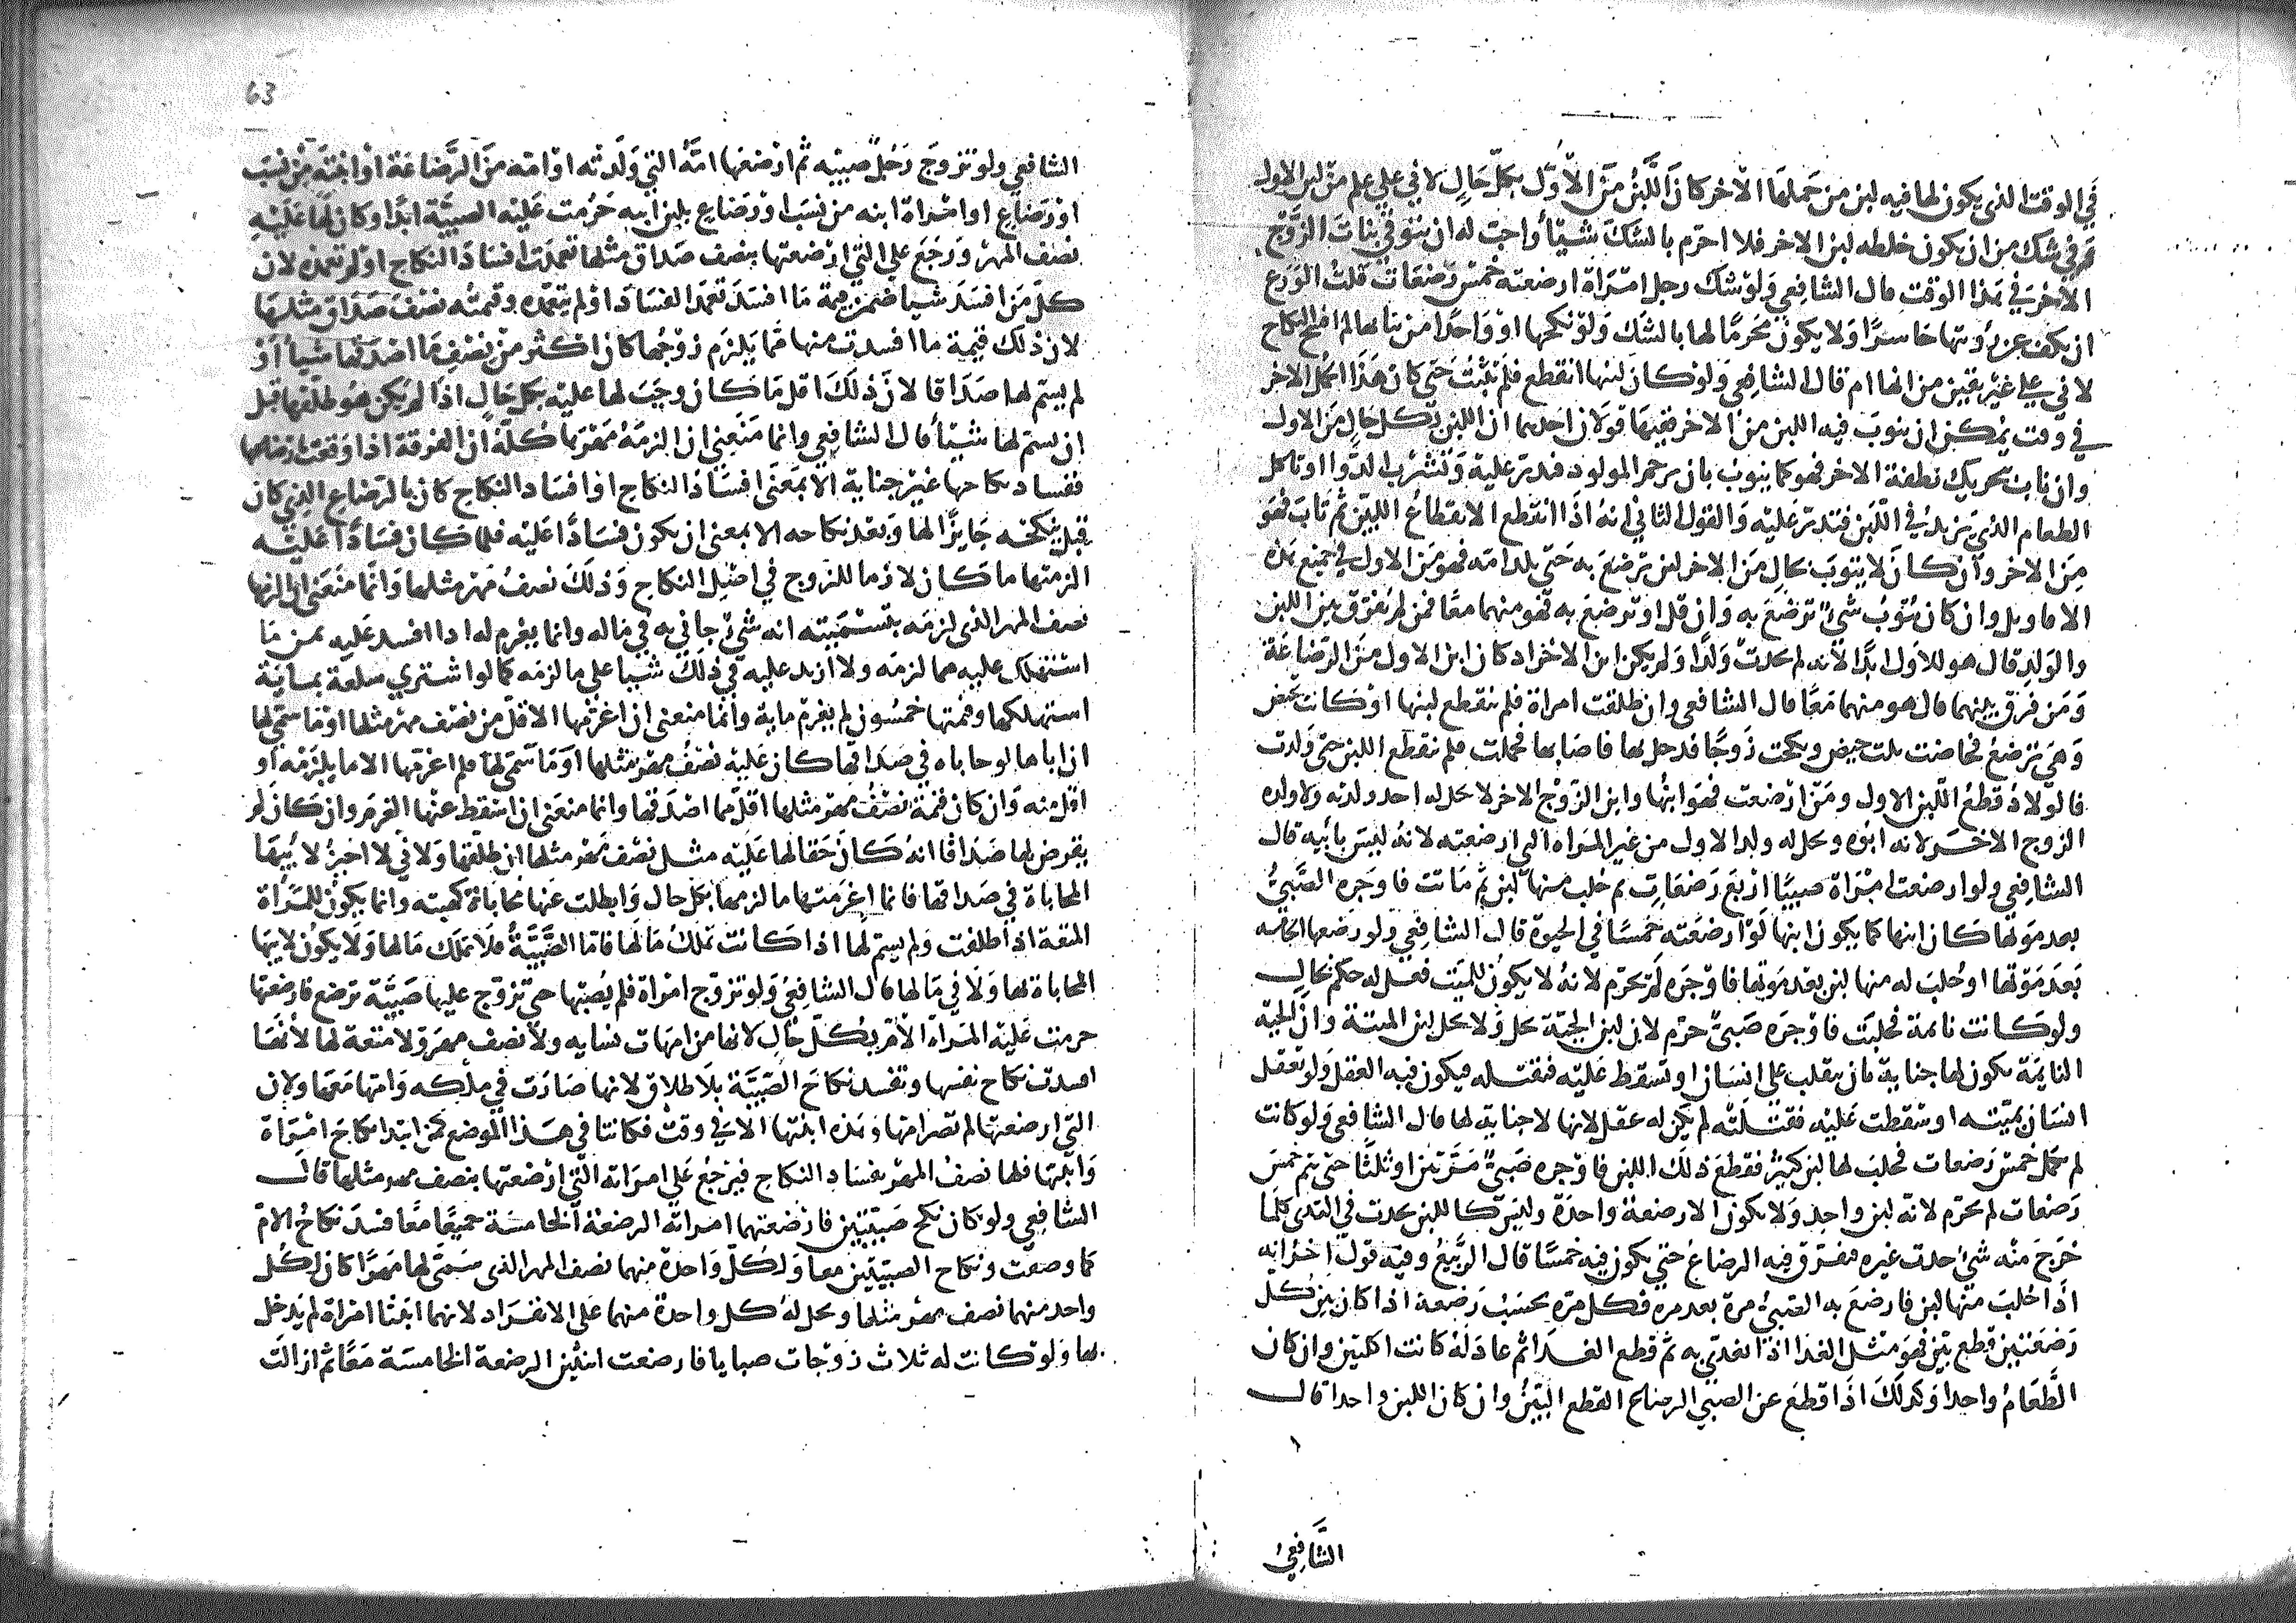 في الوقت الذي يكون لها فيه لبن من حملها الآخر كان اللبن من الأول بكل حال لأني على علم من لبن الأول
وفي شك من ان يكون خلطه لبن الاخر فلا احرم بالشك شيئا واحب له ان يتوقى بنات الزوج
الآخر في هذا الوقت قال الشافعي ولو شك رجل ان امرأة ارضعته خمس رضعات قلت الورع
ان يكف عن رؤيتها حاسرا ولا يكون محرما لها بالشك ولو نكحها او واحدا من بناتها لم افسخ النكاح
لاني على غير يقين من انها ام قال الشافعي ولو كان لبنها انقطع فلم يثبت حتى كان هذا الحمل الاخر
في وقت يمكن ان يثوب فيه اللبن من الاخر ففيها قولان احدهما ان اللبن بكل حال من الاول
وان ثاب بتحريك نطفة الاخر فهو كما يثوب بان ترحم المولود فتدر عليه وتشرب الدوا او تاكل
الطعام الذي يزيد في اللبن فتدر عليه والقول الثاني انه اذا انقطع الانقطاع البين ثم ثاب فهو
من الاخر وان كان لا يثوب بحال من الاخر لبن ترضع به حتى تلد امه فهو من الاول في جميع هذه
الاقاويل وان كان يثوب شي ترضع به وان قل او ترضع به فهو منهما معا فمن لم يفرق بين اللبن
والولد قال هو للاول ابدا لانه لم يحدث ولدا ولم يكن ابن الاخر اذ كان ابن الاول من الرضاعة
ومن فرق بينهما قال هو منهما معا قال الشافعي وان طلقت امراة فلم ينقطع لبنها او كانت تحيض
وهي ترضع فحاضت ثلث حيض ونكحت زوجا فدخل بها فاصابها فحملت فلم ينقطع اللبن حتى ولدت
فالولاد قطع اللبن الاول ومن ارضعت فهو ابنها وابن الزوج الاخر لا يحل له احد ولدته ولا ولده
الزوج الاخر لانه ابوه ويحل له ولد الاول من غير المراه التي ارضعته لانه ليس بابيه قال
الشافعي ولو ارضعت امراة صبيا اربع رضعات ثم حلب منها لبن ثم ماتت فاوجره الصبي
بعد موتها كان ابنها كما يكون ابنها لو ارضعته خمسا في الحيوة قال الشافعي ولو رضعها الخامسه
بعد موتها او حلب له منها لبن بعد موتها فاوجره لم يحرم لانه لا يكون للميت فعل له حكم بحال
ولو كانت نائمة فحلبت فاوجره صبي حرم لان لبن الحية يحل ولا يحل لبن الميتة وان الحية
النائمة يكون لها جناية بان ينقلب على انسان او تسقط عليه فتقتله فيكون فيه العقل ولو تعقل
انسان بميته او سقطت عليه فقتلته لم يكن له عقل لانها لا جناية لها قال الشافعي ولو كانت
لم تكمل خمس رضعات فحلب لها لبن كثير فقطع ذلك اللبن فاوجره صبي مرتين او ثلثا حتى يتم خمس
رضعات لم يحرم لانه لبن واحد ولا يكون الا رضعة واحدة وليس كاللبن يحدث في الثدي كلما
خرج منه شي حدث غيره فيفرق فيه الرضاع حتى يكون فيه خمسا قال الربيع وفيه قول اخر انه
اذا حلب منها لبن فارضع به الصبي مرة بعد مره فكل مره تحسب رضعة اذا كان بين كل
رضعتين قطع بين فهو مثل الغدا اذا تغدى به ثم قطع الغدا ثم عاد له كانت اكلتين وان كان
الطعام واحدا وكذلك اذا قطع عن الصبي الرضاع القطع البين وان كان اللبن واحدا قال
الشافعي
63
الشافعي ولو تزوج رجل صبية ثم ارضعها امه التي ولدته او امه من الرضاعة او ابنته من نسب
او رضاع او امراة ابنه من نسب او رضاع بلبن ابنه حرمت عليه الصبية ابدا وكان لها عليه
نصف المهر ورجع على التي ارضعتها بنصف صداق مثلها تعمدت افساد النكاح او لم تعمده لان
كل من افسد شيا ضمن قيمة ما افسد تعمد الفساد او لم يتعمده وقيمته نصف صداق مثلها
لان ذلك قيمة ما افسدت منها مما يلزم زوجها كان اكثر من نصف ما اصدقها شيا او
لم يسم لها صداقا لان ذلك اقل ما كان وجب لها عليه بكل حال اذا لم يكن هو طلقها قبل
ان يسم لها شيئا قال الشافعي وانما منعني ان الزمه مهرها كله ان الفرقة اذا وقعت برضاعها
ففساد نكاحها غير جناية الا بمعنى افساد النكاح او افساد النكاح كان بالرضاع الذي كان
قبل نكحه جايزا لها وبعد نكاحه الا بمعنى ان يكون فسادا عليه فلما كان فسادا عليه
الزمتها ما كان لازما للزوج في اصل النكاح وذلك نصف مهر مثلها وانما منعني ان الزمها
نصف المهر الذي لزمه بتسميته انه شي حابي به في ماله وانما يغرم له اذا افسد عليه ثمن ما
استهلك عليه مما لزمه ولا ازيد عليه في ذلك شيا على ما لزمه كما لو اشترى سلعة بماية
استهلكها وقيمتها خمسون لم يغرم ماية وانما منعني ان اغرمها الاقل من نصف مهر مثلها او ما سمى لها
ان اباها لو حاباه في صداقها كان عليه نصف مهر مثلها او ما سمى لها فلم اغرمها الا ما يلزمه او
اقل منه وان كان قيمة نصف مهر مثلها اقل مما اصدقها وانما منعني ان اسقط عنها الغرم وان كان لم
يفرض لها صداقا انه كان حقا لها عليه مثل نصف مهر مثلها ان طلقها ولاني لا اجيز لابيها
المحاباة في صداقها فانما اغرمتها ما لزمها بكل حال وابطلت عنها محاباة كهبته وانما يكون للمراة
المتعة اذا طلقت ولم يسم لها اذا كانت تملك مالها فاما الصبية فلا تملك مالها ولا يكون لابيها
المحاباة لها ولا في مالها قال الشافعي ولو تزوج امراة فلم يصبها حتى تزوج عليها صبية ترضع فارضعتها
حرمت عليه المراة الام بكل حال لانها من امهات نسايه ولا نصف مهر ولا متعة لها لانها
افسدت نكاح نفسها وتفسد نكاح الصبية بلا طلاق لانها صارت في ملكه وامها معها ولان
التي ارضعتها لم تصر امها وهذه ابنتها الا في وقت فكانتا في هذا الموضع كمن ابتدا نكاح امراة
وابنتها فلها نصف المهر بفساد النكاح فيرجع على امراته التي ارضعتها بنصف مهر مثلها قال
الشافعي ولو كان نكح صبيتين فارضعتهما امراته الرضعة الخامسة جميعا معا فسد نكاح الام
كما وصفت ونكاح الصبيتين معا ولكل واحدة منهما نصف المهر الذي سمى لها مهرا كان لكل
واحد منهما نصف مهر مثلها ويحل له كل واحدة منهما على الانفراد لانهما ابنتا امراة لم يدخل
بها ولو كانت له ثلاث زوجات صبايا فارضعت اثنتين الرضعة الخامسة معا ثم ازالت